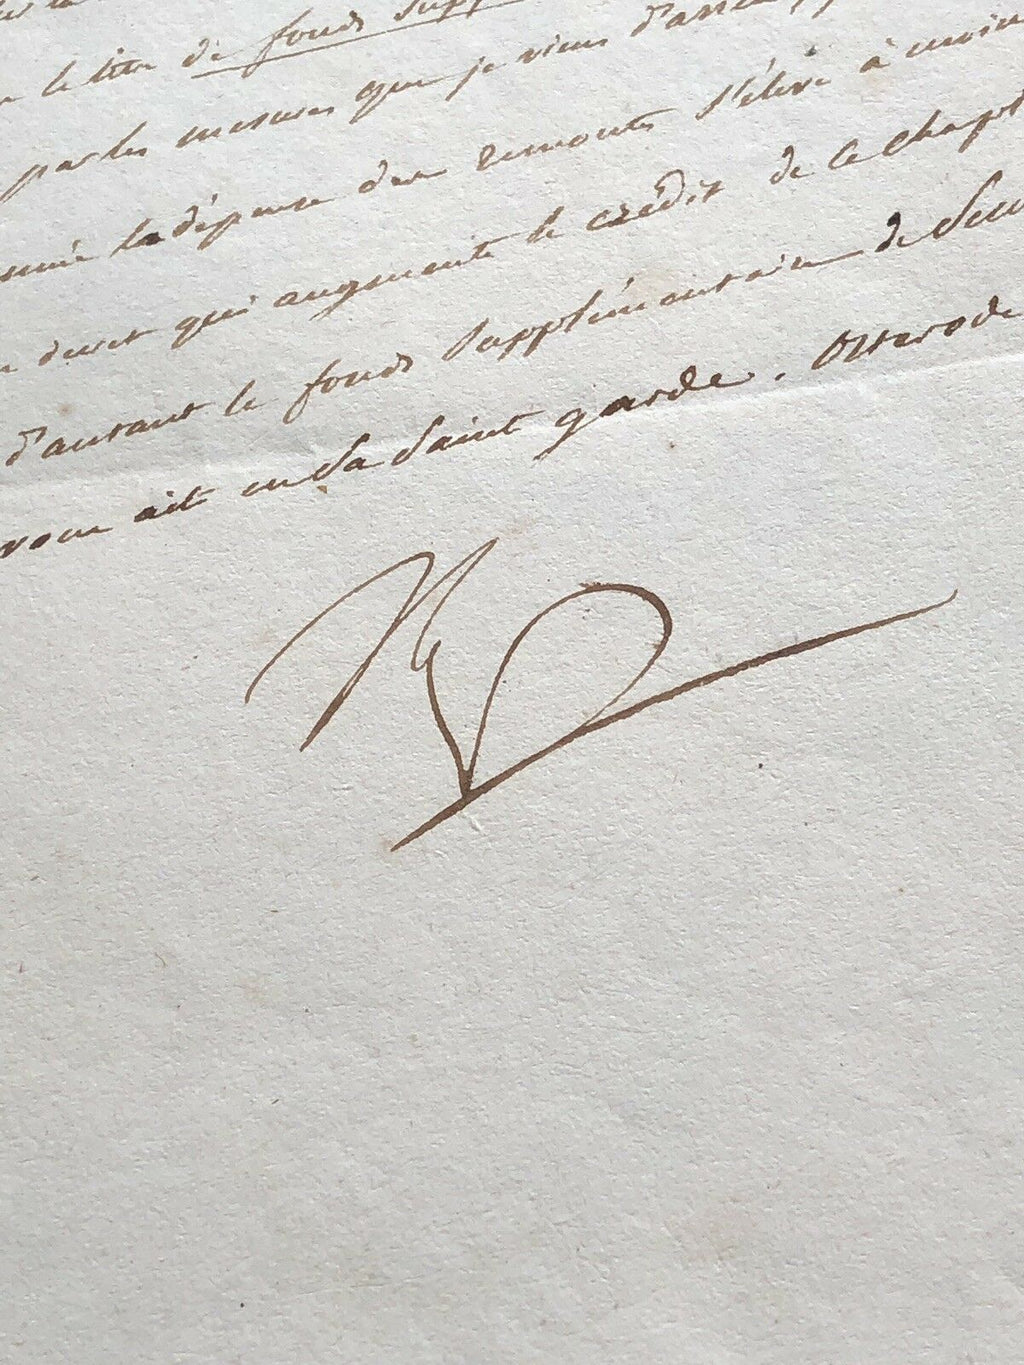 le titre de fonds supp
par les mesures que je viens d'arrê
la dépense des remontes s'élève à moins
decret qui augmente le crédit de ce chapit
d'autant le fonds supplémentaire de
vous ait en sa saint garde. Osterode